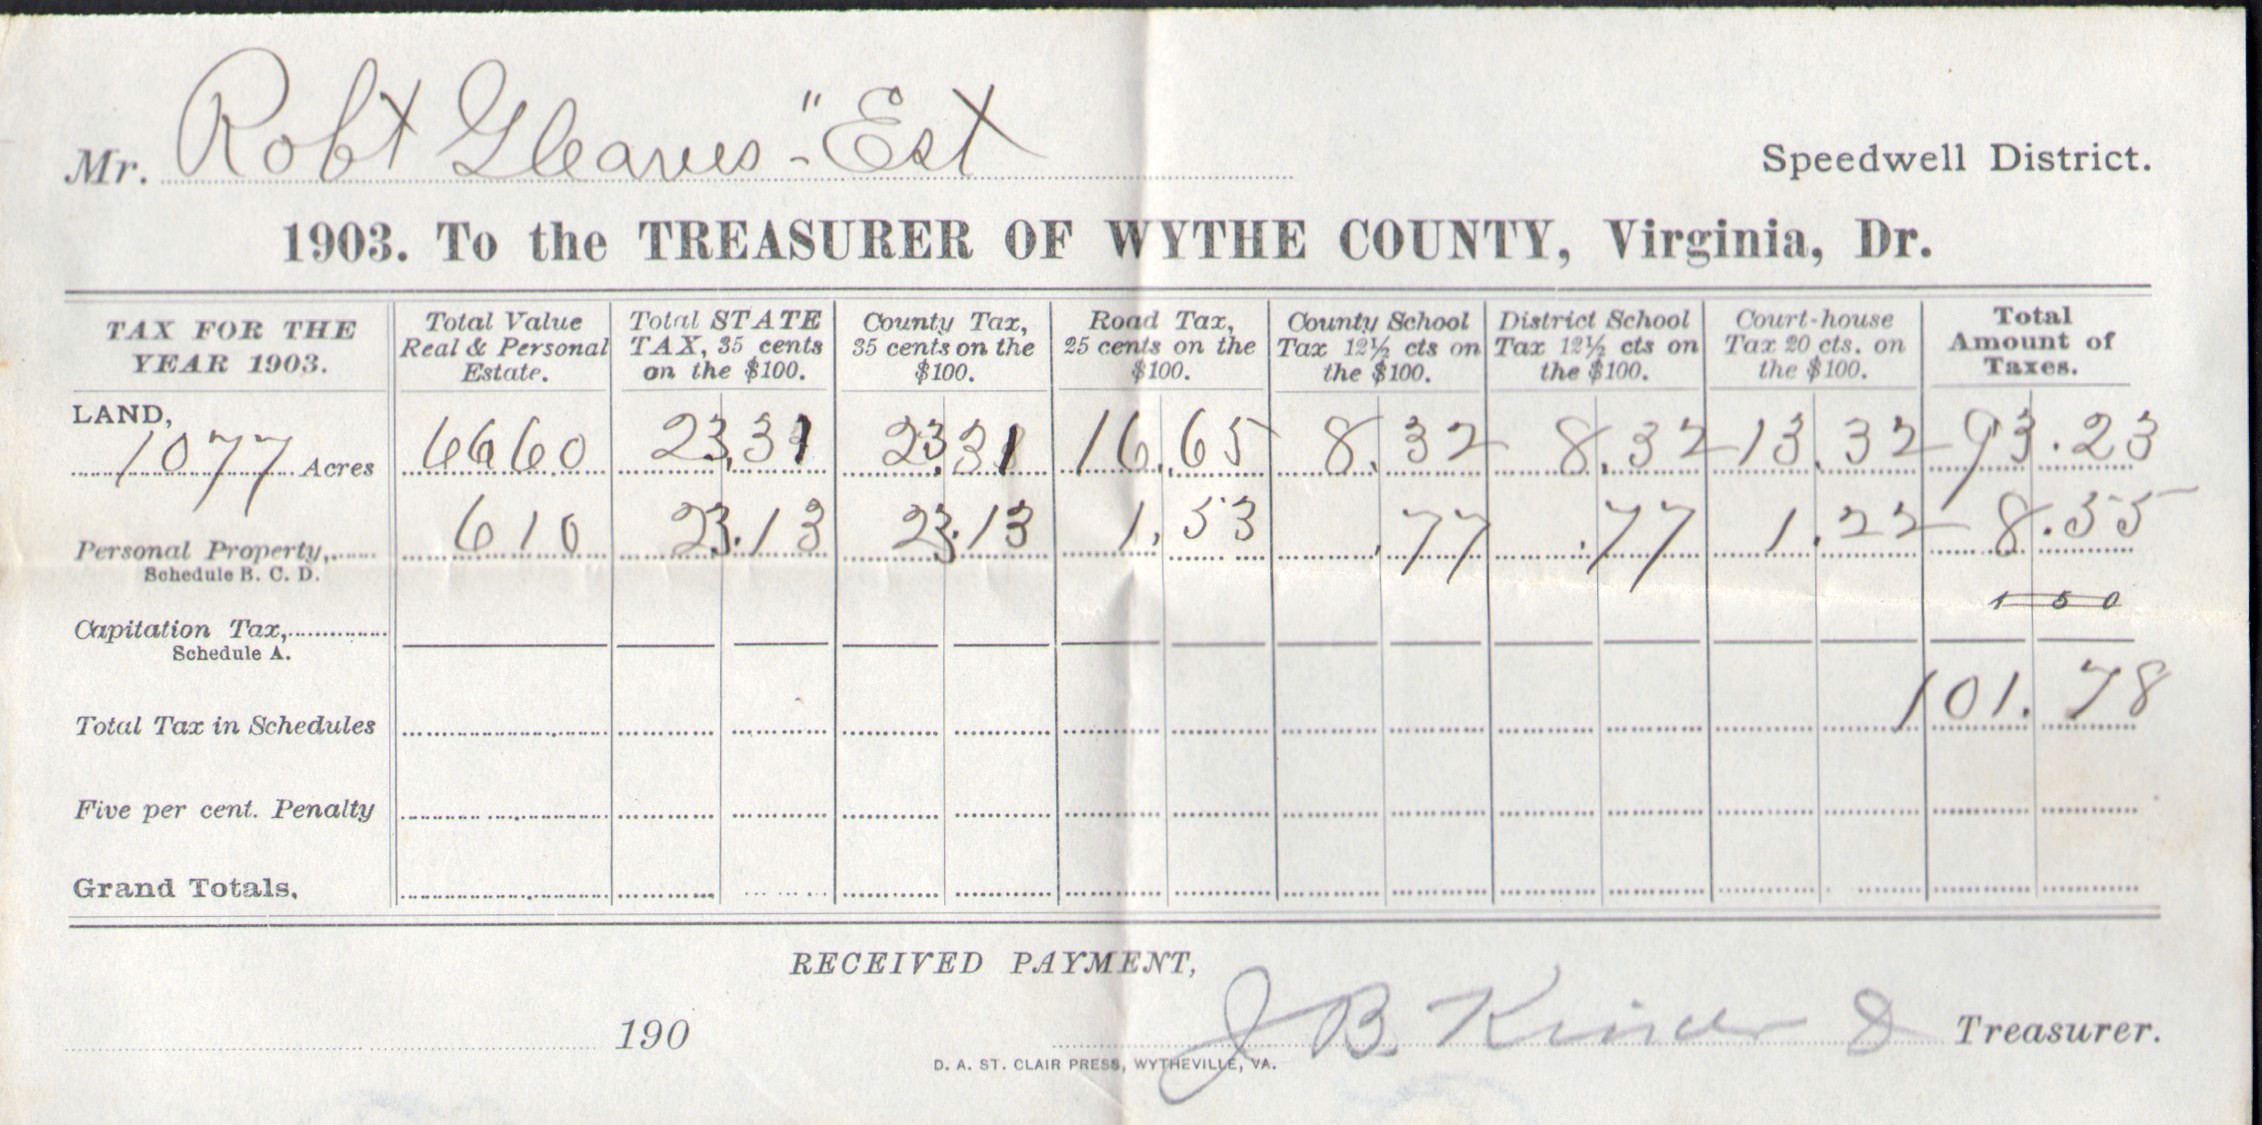 Mr. Robt Gleaves "Est
Speedwell District.
1903. To the TREASURER OF WYTHE COUNTY, Virginia, Dr.
TAX FOR THE YEAR 1903. | Total Value Real & Personal Estate. | Total STATE TAX, 35 cents on the $100. | County Tax, 35 cents on the $100. | Road Tax, 25 cents on the $100. | County School Tax 12½ cts on the $100. | District School Tax 12½ cts on the $100. | Court-house Tax 20 cts. on the $100. | Total Amount of Taxes.
LAND,
1077 Acres 6660 23.31 23.31 16.65 8.32 8.32 13.32 93.23
Personal Property, 610 2.13 2.13 1.53 .77 .77 1.22 8.55
Schedule B. C. D.
1 50
Capitation Tax,
Schedule A.
Total Tax in Schedules 101.78
Five per cent. Penalty
Grand Totals.
RECEIVED PAYMENT,
190 J B. Kinder D Treasurer.
D. A. ST. CLAIR PRESS, WYTHEVILLE, VA.